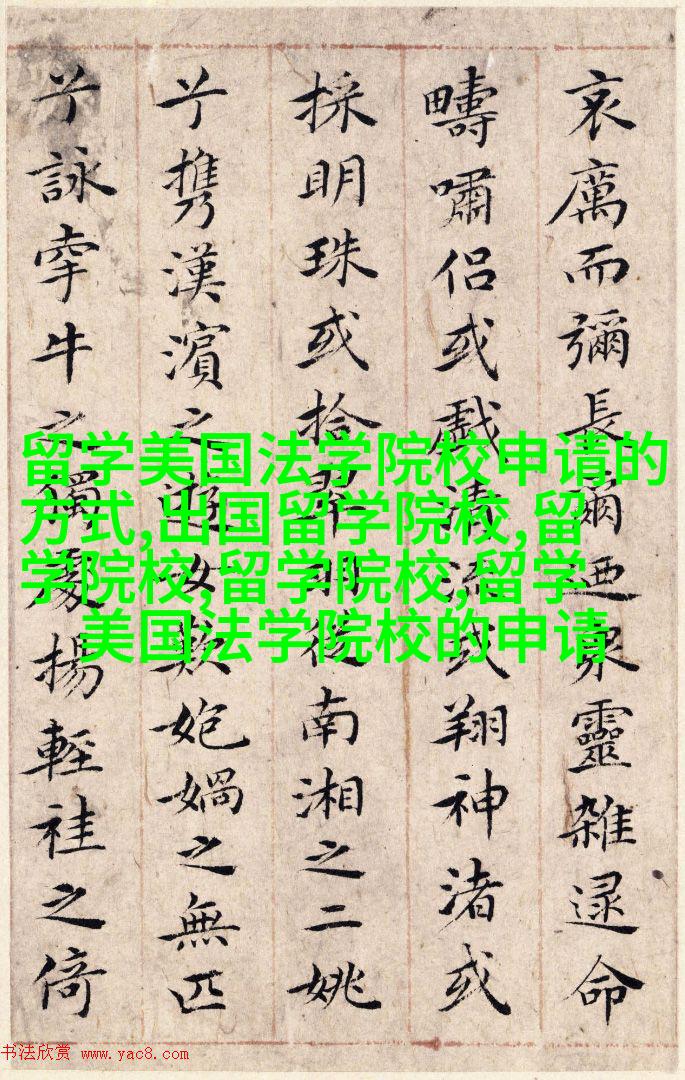 哀厲而彌長爾迺眾靈雜遝命
疇嘯侶或戲清流或翔神渚或
採明珠或拾翠羽從南湘之二姚
兮携漢濱之遊女歎媧之無匹
兮詠牽牛之獨處揚輕袿之倚
留学美国法学院校申请的
方式,出国留学院校,留
学院校,留学院校,留学
美国法学院校的申请
书法欣赏 www.yac8.com